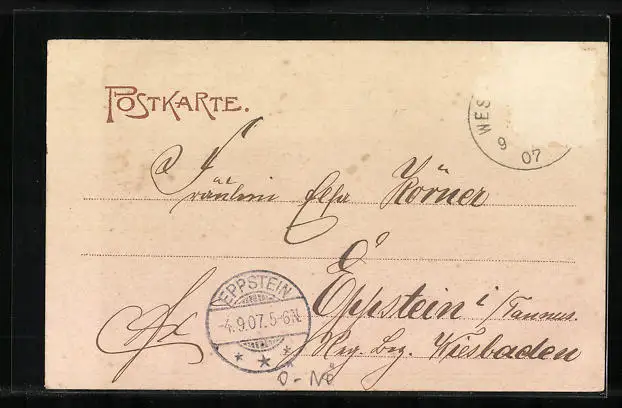 POSTKARTE.
WES
9 07
Fräulein Elsa Körner
Eppstein i/Taunus.
Reg. Bez. Wiesbaden
EPPSTEIN
4.9.07.5-6N